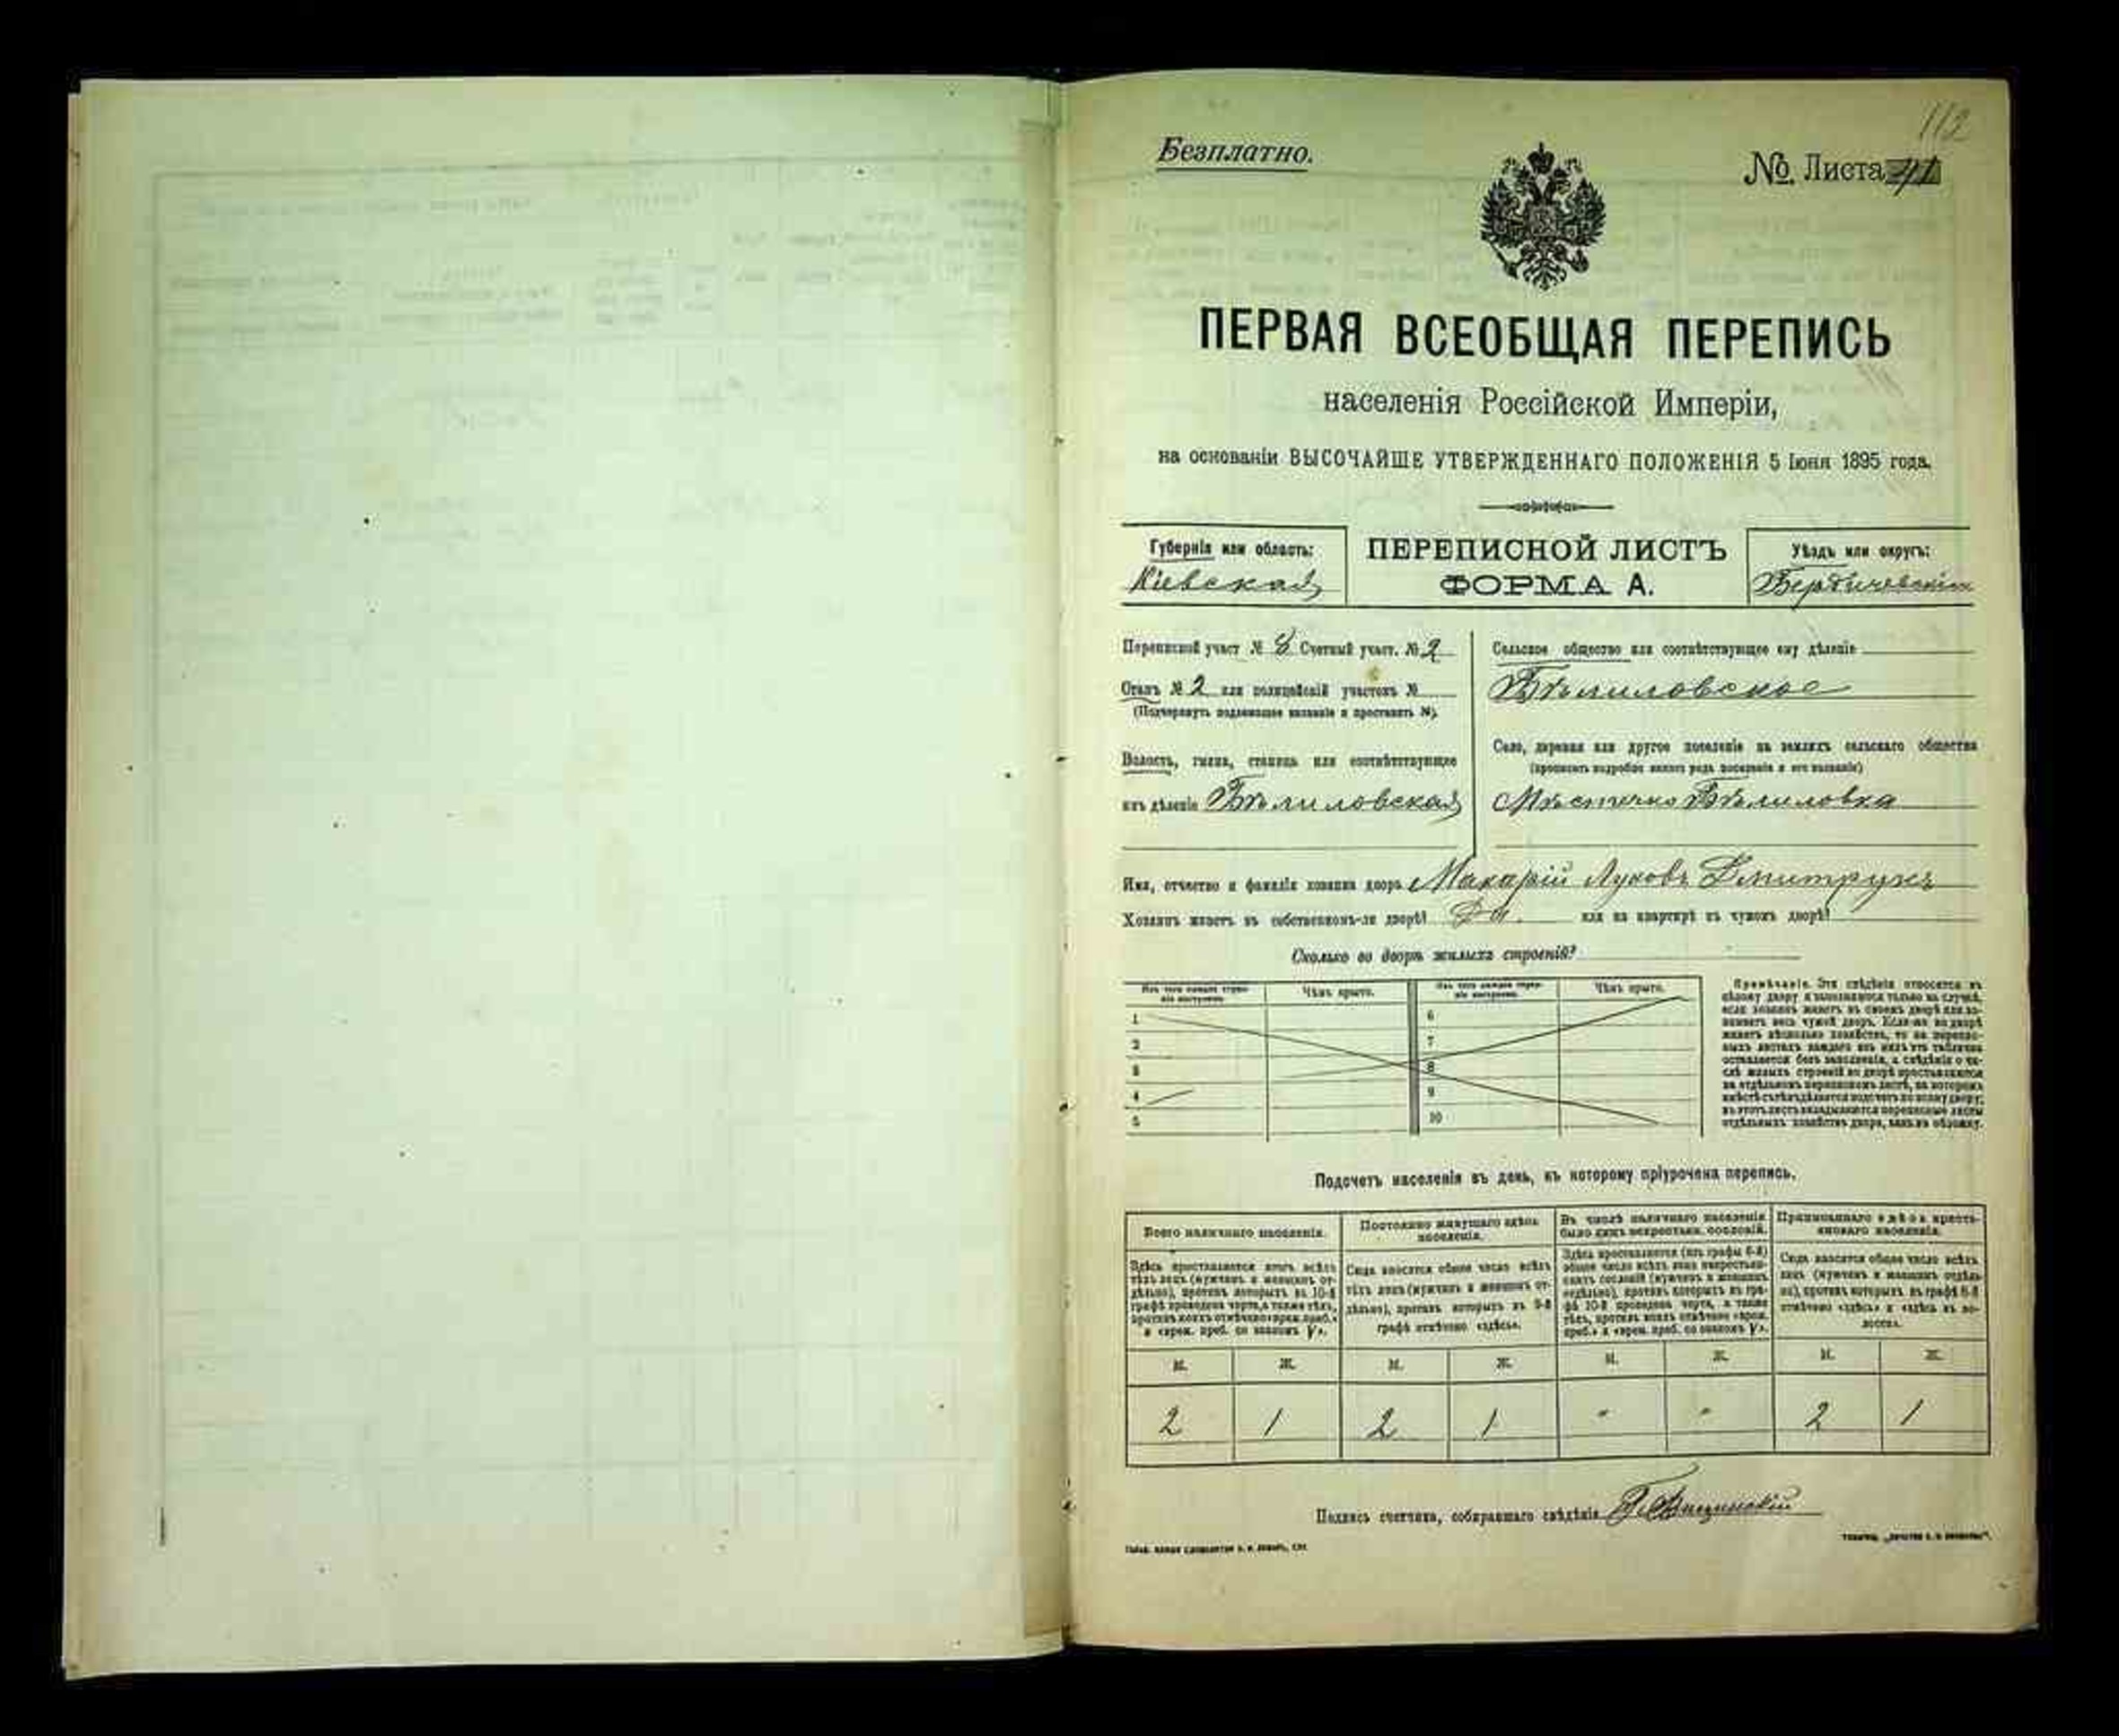 112
Безплатно.
№ Листа 41
ПЕРВАЯ ВСЕОБЩАЯ ПЕРЕПИСЬ
населенія Россійской Имперіи,
на основаніи ВЫСОЧАЙШЕ УТВЕРЖДЕННАГО ПОЛОЖЕНІЯ 5 Іюня 1895 года.
Губернія или область:
Кіевская
ПЕРЕПИСНОЙ ЛИСТЪ
ФОРМА А.
Уѣздъ или округъ:
Бердичевскій
Переписной участ № 8 Счетный участ. № 2
Станъ № 2 или полицейскій участокъ №
(Подчеркнуть подлежащее названіе и проставить №).
Волость, гмина, станица или соотвѣтствующее
имъ дѣленіе Бѣлиловская
Сельское общество или соотвѣтствующее ему дѣленіе
Бѣлиловское
Село, деревня или другое поселеніе на земляхъ сельскаго общества
(прописать подробно какого рода поселеніе и его названіе)
Мѣстечко Бѣлиловка
Имя, отчество и фамилія хозяина двора Макарій Луковъ Дмитрукъ
Хозяинъ живетъ въ собственномъ-ли дворѣ? Да. или на квартирѣ въ чужомъ дворѣ?
Сколько во дворѣ жилыхъ строеній?
Изъ чего каждое строеніе построено.
Чѣмъ крыто.
Изъ чего каждое строеніе построено.
Чѣмъ крыто.
1 6
2 7
3 8
4 9
5 10
Примѣчаніе. Эти свѣдѣнія относятся къ
цѣлому двору и заполняются только въ случаѣ,
если хозяинъ живетъ въ своемъ дворѣ или занимаетъ
весь чужой дворъ. Если-же во дворѣ
живетъ нѣсколько хозяйствъ, то на переписныхъ
листахъ каждаго изъ нихъ эта табличка
оставляется безъ заполненія, а свѣдѣнія о числѣ
жилыхъ строеній во дворѣ проставляются
на отдѣльномъ переписномъ листѣ, на которомъ
вмѣстѣ съ тѣмъ дѣлается подсчетъ по всему двору;
въ этотъ листъ вкладываются переписные листы
отдѣльныхъ хозяйствъ двора, какъ въ обложку.
Подсчетъ населенія въ день, къ которому пріурочена перепись.
Всего наличнаго населенія.
Здѣсь проставляется итогъ всѣхъ
тѣхъ лицъ (мужчинъ и женщинъ отдѣльно),
противъ которыхъ въ 10-й
графѣ проведена черта, а также тѣхъ,
противъ коихъ отмѣчено «врем. преб.»
и «врем. преб. со знакомъ V».
Постоянно живущаго здѣсь
населенія.
Сюда вносится общее число всѣхъ
тѣхъ лицъ (мужчинъ и женщинъ отдѣльно),
противъ которыхъ въ 9-й
графѣ отмѣчено «здѣсь».
Въ числѣ наличнаго населенія
было лицъ некрестьянск. сословій.
Здѣсь проставляется (изъ графы 6-й)
общее число всѣхъ лицъ некрестьянскихъ
сословій (мужчинъ и женщинъ
отдѣльно), противъ которыхъ въ графѣ
10-й проведена черта, а также
тѣхъ, противъ коихъ отмѣчено «врем.
преб.» и «врем. преб. со знакомъ V».
Приписаннаго здѣсь крестьянскаго
населенія.
Сюда вносится общее число всѣхъ
лицъ (мужчинъ и женщинъ отдѣльно),
противъ которыхъ въ графѣ 8-й
отмѣчено «здѣсь» и «здѣсь въ волости».
М. Ж. М. Ж. М. Ж. М. Ж.
2 1 2 1 " " 2 1
Подпись счетчика, собиравшаго свѣдѣнія